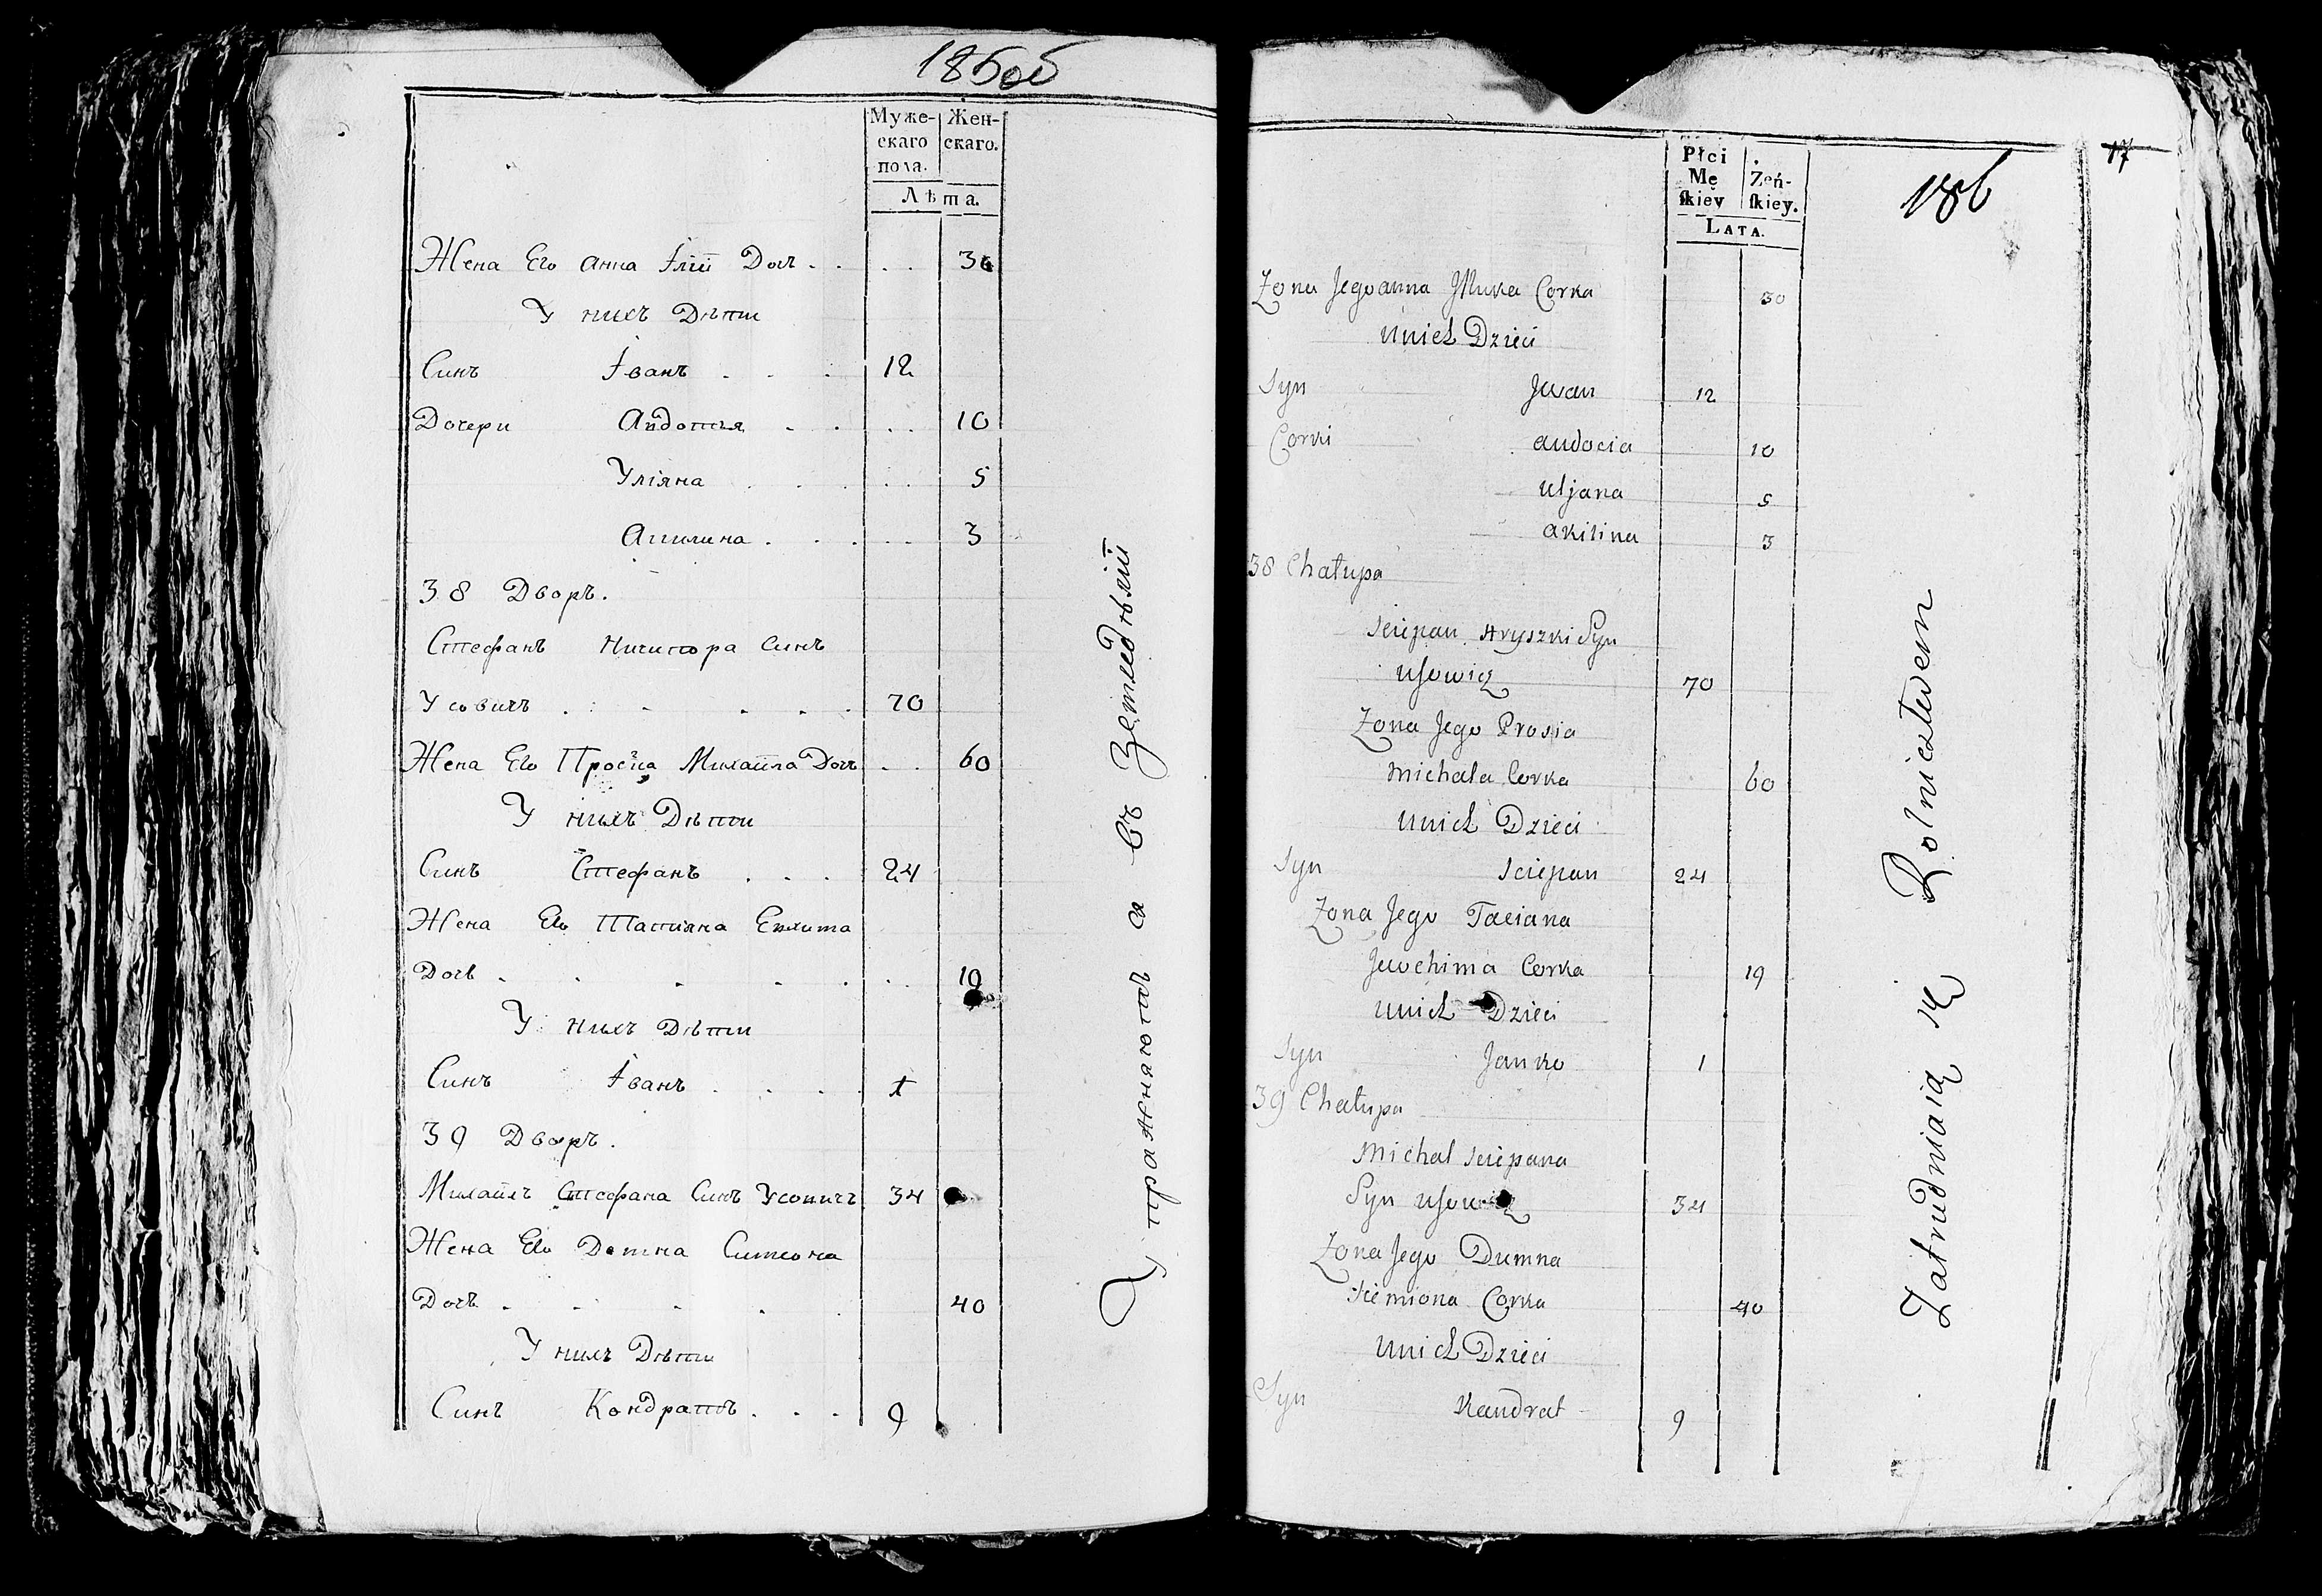 185об
Муже-
скаго
пола.
Жен-
скаго.
Лѣта.
Жена Его Анна Iлiи Доч . . . . 30
У нихъ Дѣти
Синъ Iванъ . . . 12
Дочери Авдотья . . . . 10
Улiяна . . . . . 5
Акилина . . . . . 3
38 Дворъ.
Стефанъ
Синъ
Усовичъ . . . . . . 70
Жена Его Просiа Михайла Доч . . 60
У нихъ Дѣти
Синъ Стефанъ . . . 24
Жена Его Татiяна Евхима
Доч . . . . . . . 19
У нихъ Дѣти
Синъ Iванъ . . . . 1
39 Дворъ.
Михайлъ Стефана Синъ Усовичъ 34
Жена Его Домна Симеона
Доч . . . . . 40
У нихъ Дѣти
Синъ Кондратъ . . . 9
Упражняются въ Земледѣлiй
17
186
Płci
Mę
ſkiey
Żeń-
ſkiey.
LATA.
Zona Jego anna Corka 30
Unich Dzieci
Syn Jwan 12
Corki audocia 10
Uljana 5
akilina 3
38 Chałupa
Sciepan Hryszki Syn
Usowicz 70
Zona Jego Prosia
Michala Corka 60
Unich Dzieci
Syn Sciepan 24
Zona Jego Taciana
Jwochima Corka 19
Unich Dzieci
Syn Janko 1
39 Chałupa
Michal Sciepana
Syn Usowicz 34
Zona Jego Dumna
Siemiona Corka 40
Unich Dzieci
Syn Kandrat 9
Zatrudniaią się Rolnictwem